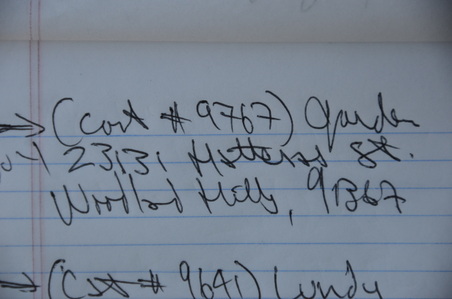 (Cost # 9767) Garden
23131 Hatteras St.
Woodland Hills, 91367
(Cst # 9641) Lundy